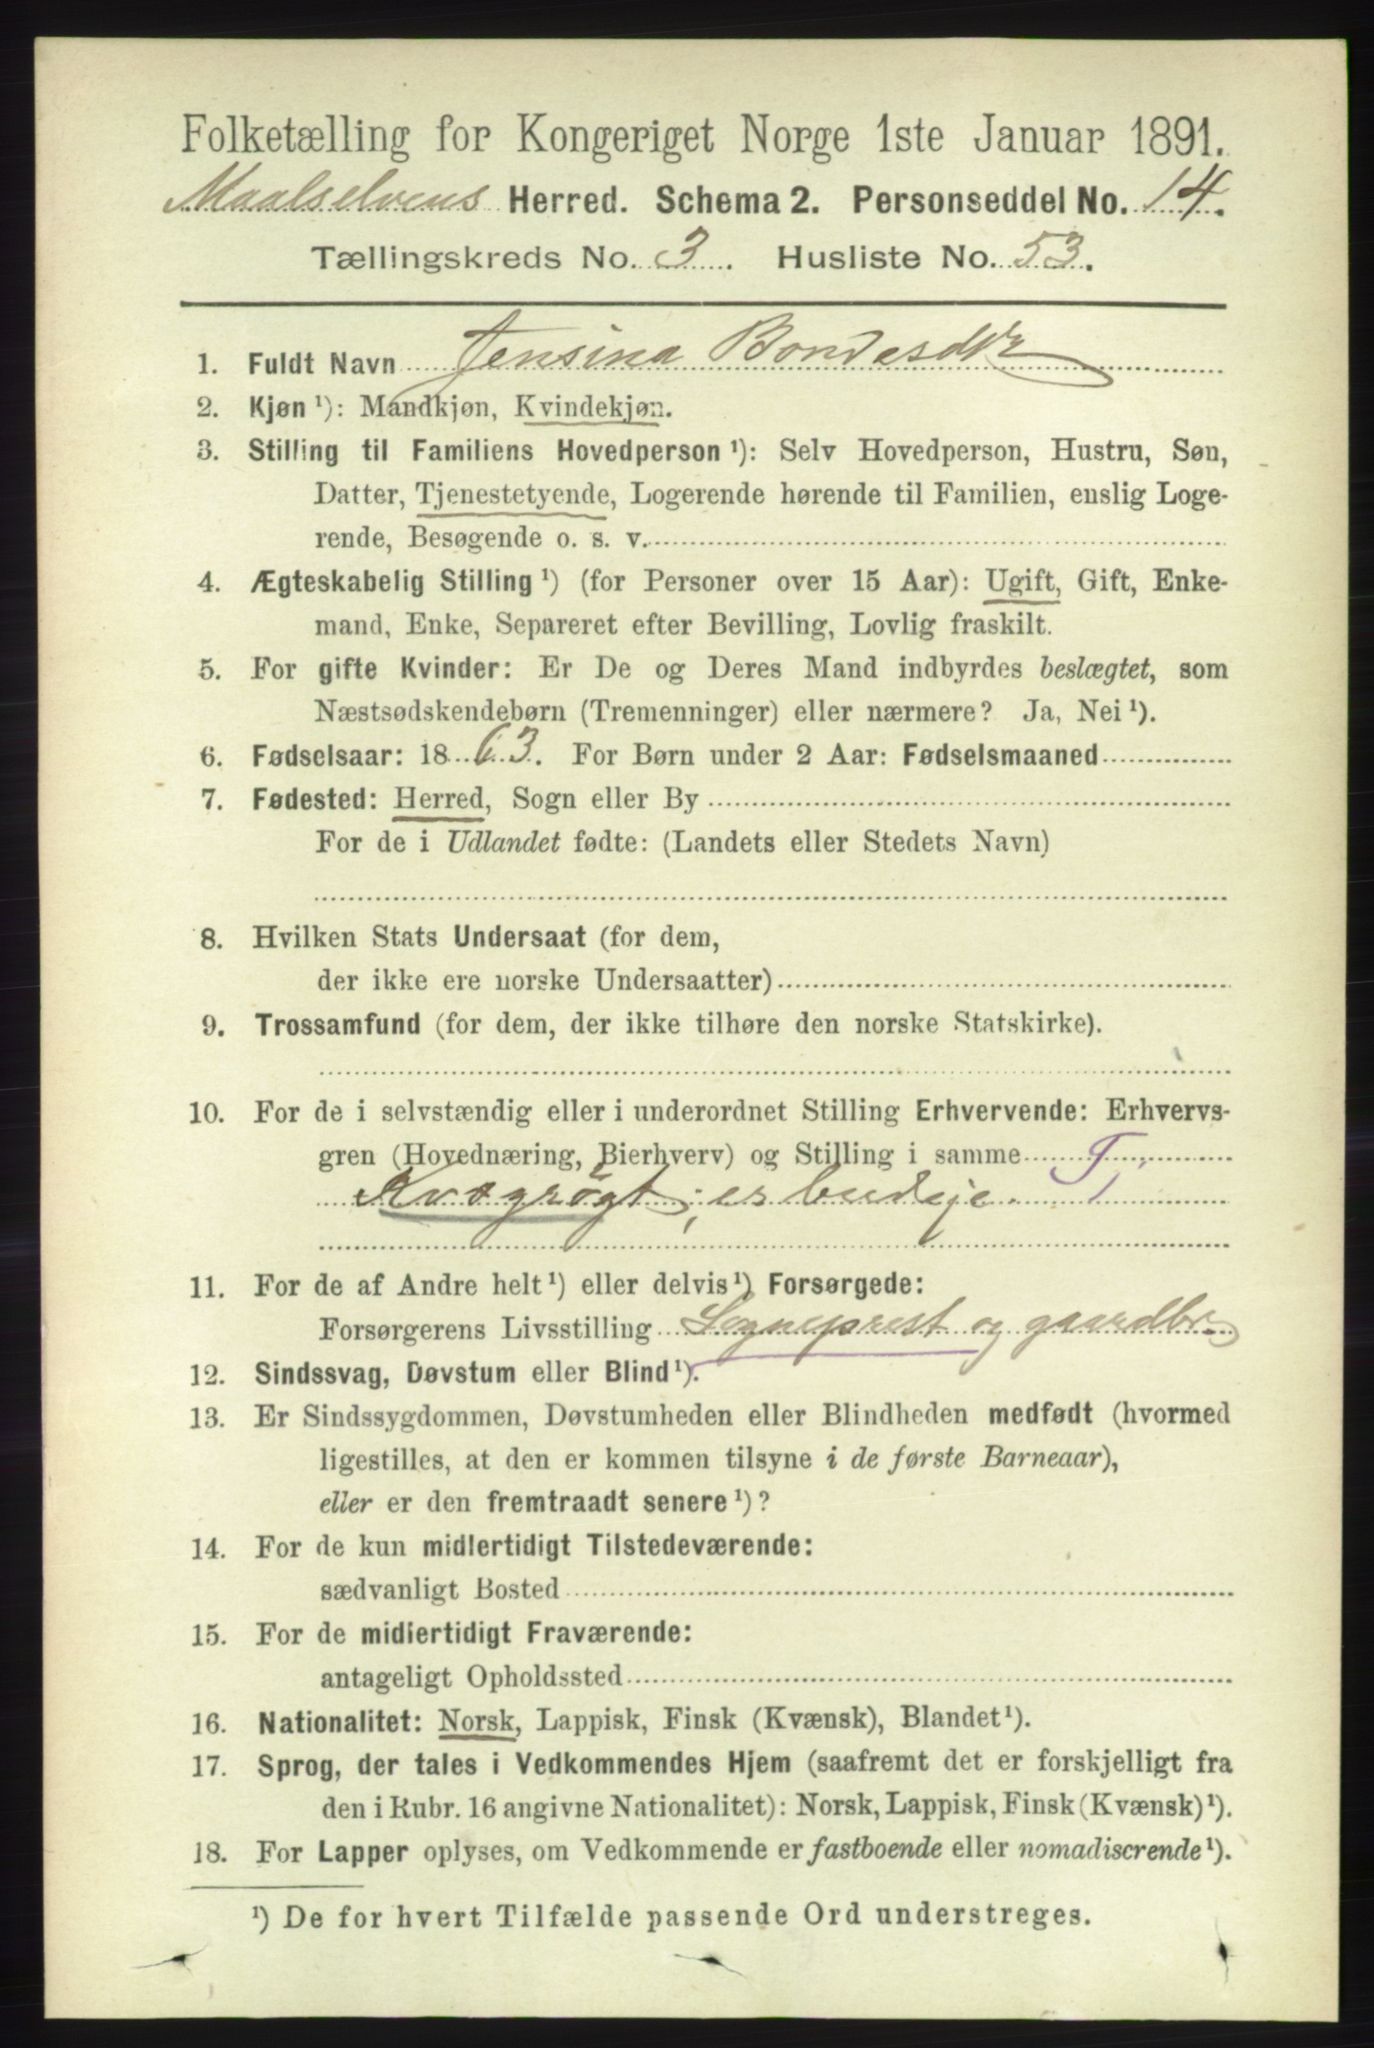 Folketælling for Kongeriget Norge 1ste Januar 1891.
Maalselvens Herred. Schema 2. Personseddel No. 14.
Tællingskreds No. 3. Husliste No. 53.
1. Fuldt Navn Jensina Bondesdtr
2. Kjøn ¹): Mandkjøn, Kvindekjøn.
3. Stilling til Familiens Hovedperson ¹): Selv Hovedperson, Hustru, Søn,
Datter, Tjenestetyende, Logerende hørende til Familien, enslig Loge-
rende, Besøgende o. s. v.
4. Ægteskabelig Stilling ¹) (for Personer over 15 Aar): Ugift, Gift, Enke-
mand, Enke, Separeret efter Bevilling, Lovlig fraskilt.
5. For gifte Kvinder: Er De og Deres Mand indbyrdes beslægtet, som
Næstsødskendebørn (Tremenninger) eller nærmere? Ja, Nei ¹).
6. Fødselsaar: 1863. For Børn under 2 Aar: Fødselsmaaned
7. Fødested: Herred, Sogn eller By
For de i Udlandet fødte: (Landets eller Stedets Navn)
8. Hvilken Stats Undersaat (for dem,
der ikke ere norske Undersaatter)
9. Trossamfund (for dem, der ikke tilhøre den norske Statskirke).
10. For de i selvstændig eller i underordnet Stilling Erhvervende: Erhvervs-
gren (Hovednæring, Bierhverv) og Stilling i samme T,
Kvægrøgt; er budeje.
11. For de af Andre helt ¹) eller delvis ¹) Forsørgede:
Forsørgerens Livsstilling Sogneprest og gaardbr
12. Sindssvag, Døvstum eller Blind ¹).
13. Er Sindssygdommen, Døvstumheden eller Blindheden medfødt (hvormed
ligestilles, at den er kommen tilsyne i de første Barneaar),
eller er den fremtraadt senere ¹)?
14. For de kun midlertidigt Tilstedeværende:
sædvanligt Bosted
15. For de midlertidigt Fraværende:
antageligt Opholdssted
16. Nationalitet: Norsk, Lappisk, Finsk (Kvænsk), Blandet ¹).
17. Sprog, der tales i Vedkommendes Hjem (saafremt det er forskjelligt fra
den i Rubr. 16 angivne Nationalitet): Norsk, Lappisk, Finsk (Kvænsk) ¹).
18. For Lapper oplyses, om Vedkommende er fastboende eller nomadiserende ¹).
¹) De for hvert Tilfælde passende Ord understreges.